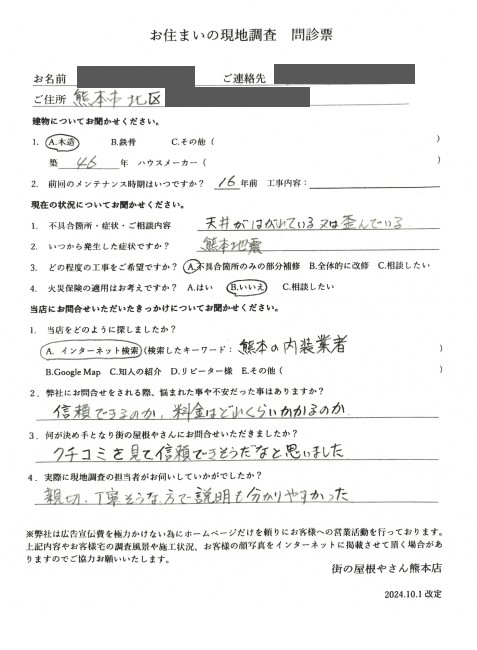 お住まいの現地調査　問診票
お名前　ご連絡先
ご住所 熊本市北区
建物についてお聞かせください。
1. A.木造　B.鉄骨　C.その他（　）
築 46 年　ハウスメーカー（　）
2. 前回のメンテナンス時期はいつですか？ 16 年前　工事内容：
現在の状況についてお聞かせください。
1. 不具合箇所・症状・ご相談内容　天井がはがれている又は歪んでいる
2. いつから発生した症状ですか？　熊本地震
3. どの程度の工事をご希望ですか？ A.不具合箇所のみの部分補修 B.全体的に改修 C.相談したい
4. 火災保険の適用はお考えですか？ A.はい　B.いいえ　C.相談したい
当店にお問合せいただいたきっかけについてお聞かせください。
1. 当店をどのように探しましたか？
A. インターネット検索（検索したキーワード：熊本の内装業者　）
B.Google Map　C.知人の紹介　D.リピーター様　E.その他（　）
2. 弊社にお問合せをされる際、悩まれた事や不安だった事はありますか？
信頼できるのか、料金はどれくらいかかるのか
3. 何が決め手となり街の屋根やさんにお問合せいただきましたか？
クチコミを見て信頼できそうだなと思いました
4. 実際に現地調査の担当者がお伺いしていかがでしたか？
親切、丁寧そうな方で説明も分かりやすかった
※弊社は広告宣伝費を極力かけない為にホームページだけを頼りにお客様への営業活動を行っております。
上記内容やお客様宅の調査風景や施工状況、お客様の顔写真をインターネットに掲載させて頂く場合があ
りますのでご協力お願いいたします。
街の屋根やさん熊本店
2024.10.1 改定